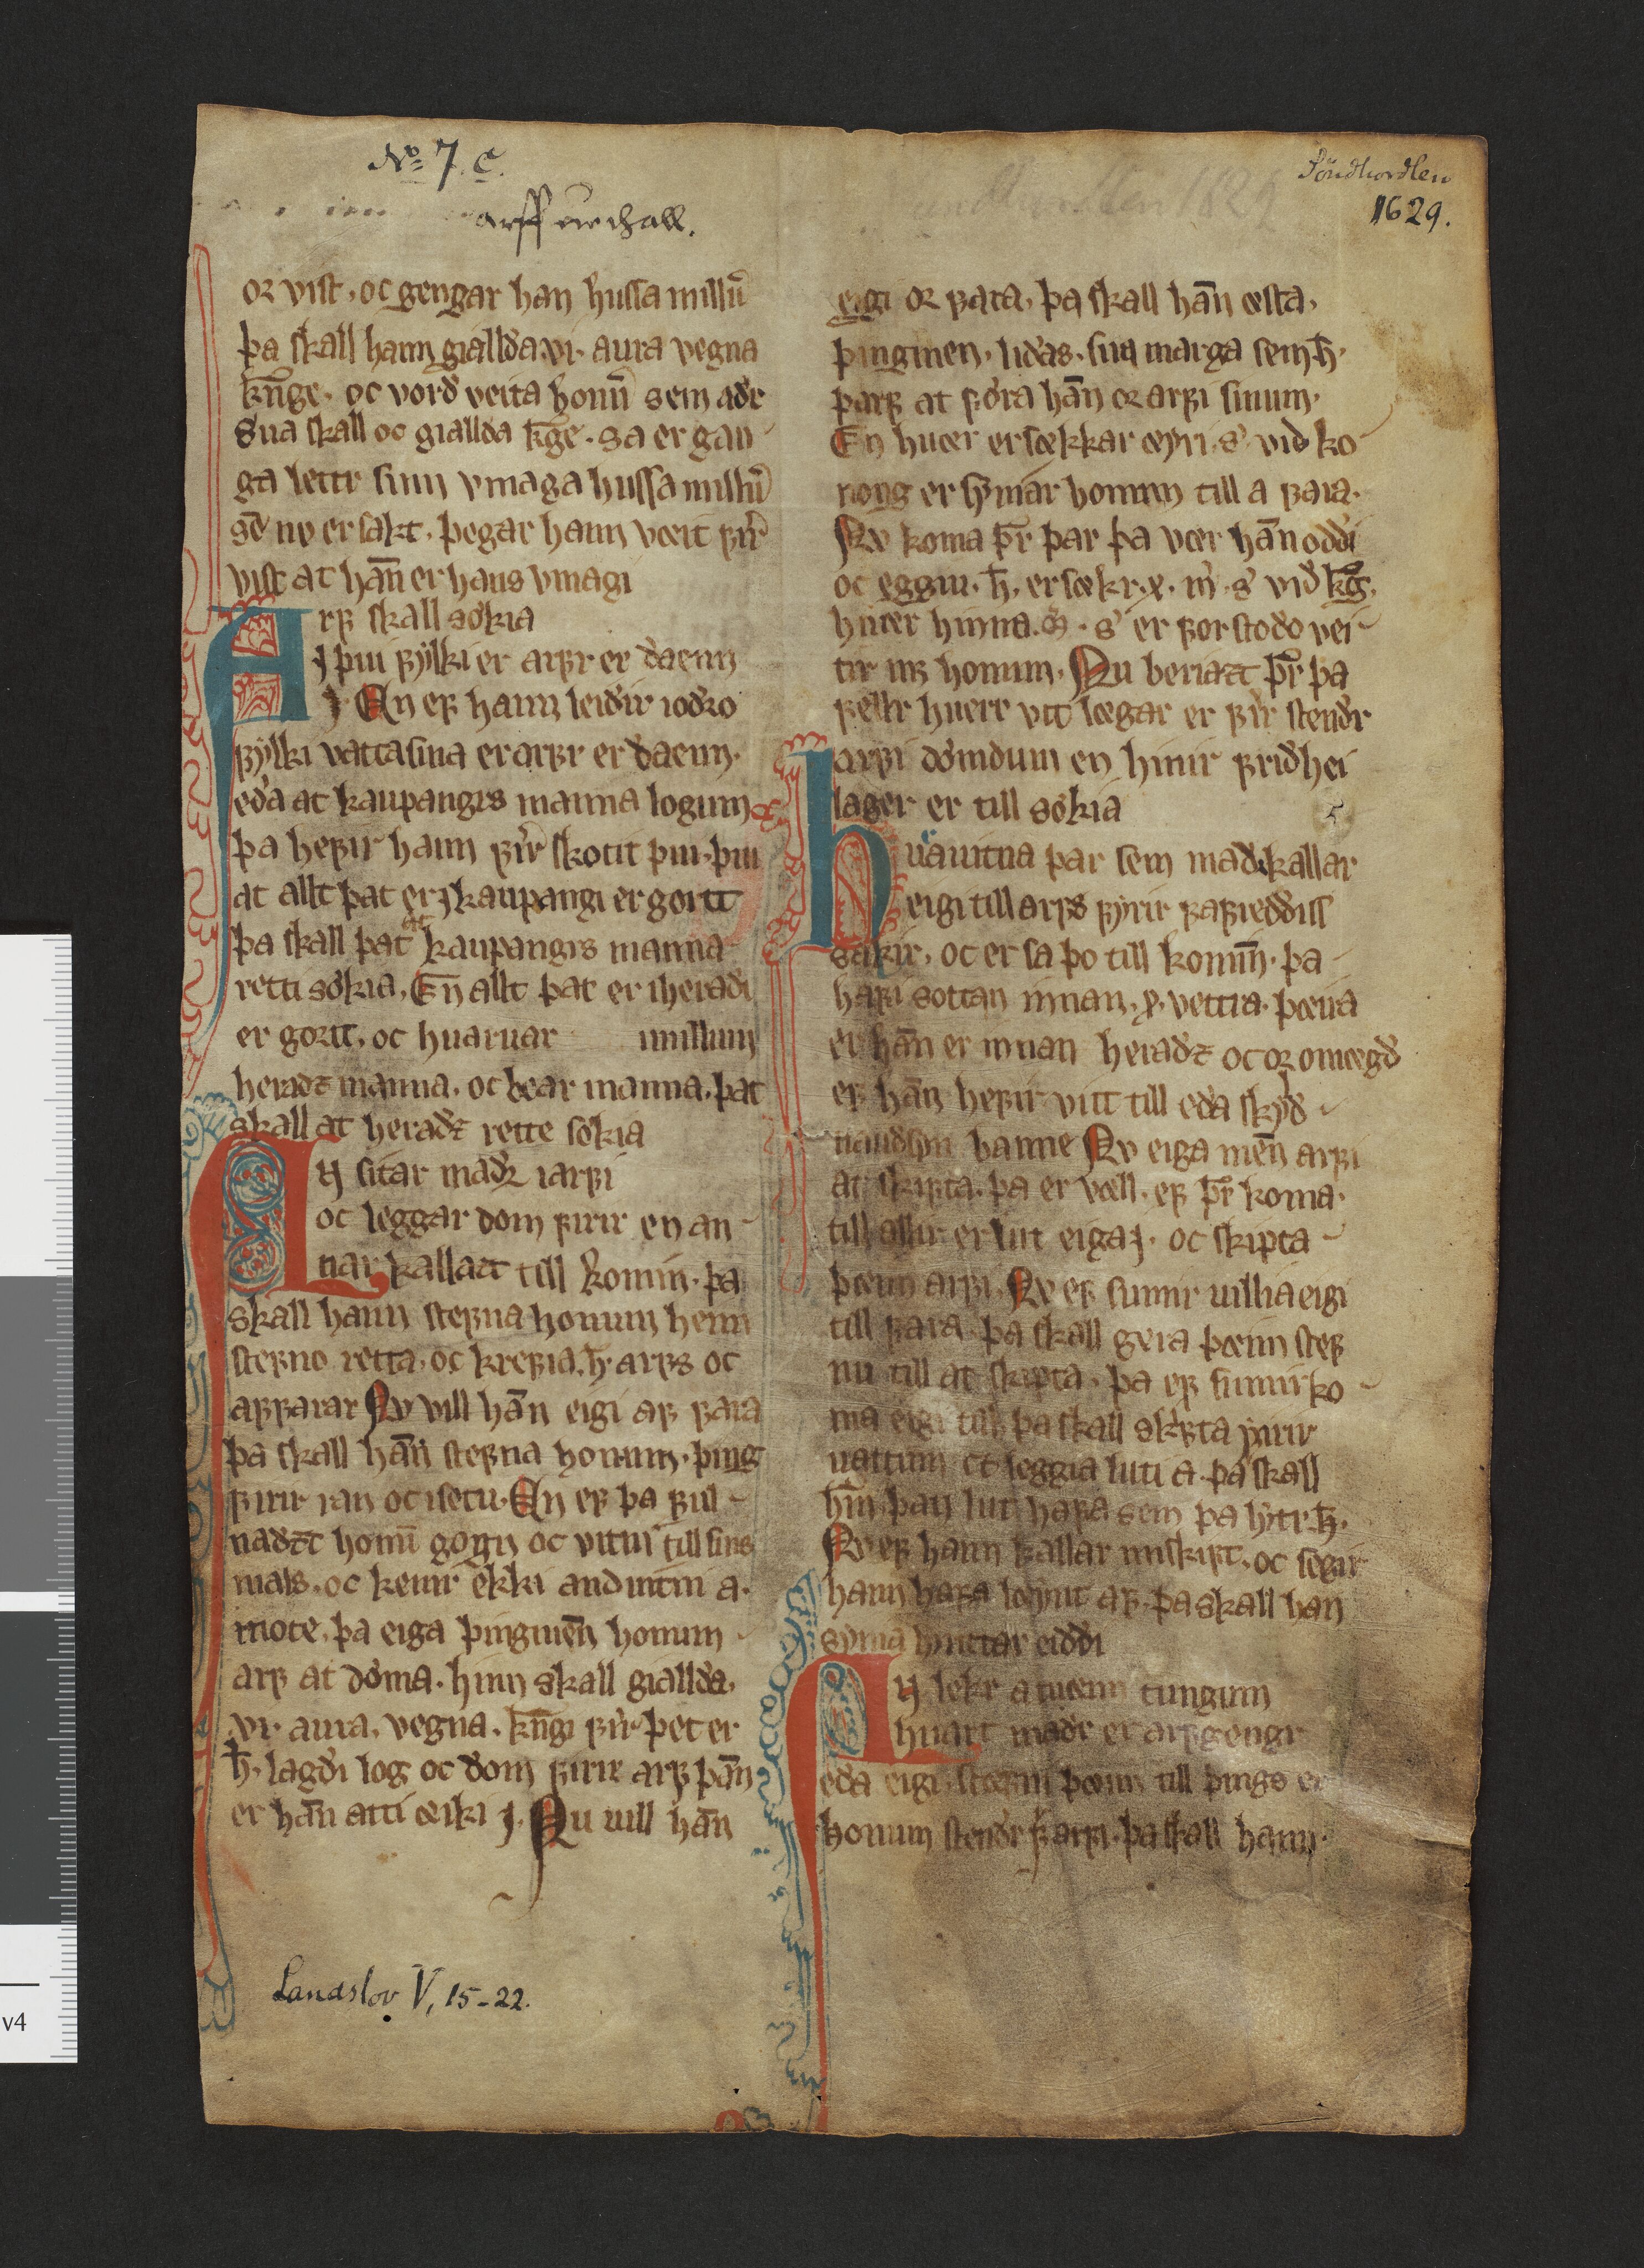 No 7. c.
arff
Söndhordlen
1629.
or vist, oc gengar han hussa millū
þa skall hann giallda vi aura vegna
kn̄ge, oc vord veita honū sem adr
Sua skall oc giallda kg̅e. sa er gan
ga lettr sinn vmaga hussa millū
sē nv er sakt, þegar hann væit ꝼyr
vist at han̄ er hans vmagi
Arꝼ skall sökia
J þui ꝼylki er arꝼr er dæmn
J. En eꝼ hann leidir iodro
ꝼylki vatta sina er arꝼr er dæmn.
eda at kaupangrs manna logum
þa heꝼir hann ꝼyr skotit þui. þui
at allt þat er j kaupangi er gortt
þa skall þat at kaupangrs manna
retti sökia, En̄ allt þat er i heradi
er gort, oc huaruar millum
heradz manna, oc bear manna, þat
skall at heradz rette sökia
En sitar madr i arꝼi
oc leggar dom ꝼirir en an
nar kallatt till komin. þa
skall hann steꝼna honum heim
steꝼno retta, oc kreꝼia. h̄. arꝼs oc
aꝼꝼarar Nv vill han̄ eigi aꝼ ꝼara
þa skall han̄ steꝼna honum. þing
ꝼirir ran oc isetu. En eꝼ þa ꝼul
nadzt honū gogn oc vitni till sins
mals, oc kemr ekki anduitni a.
mote, þa eiga þingmen̄ honum
arꝼ at döma. hinn skall giallda.
vi. aura, vegna. kn̄gi ꝼyr þet er
h̄. lagdi log oc dom ꝼirir arꝼ þan̄
er han̄ atti æiki j. Nu uill han̄
eigi or ꝼara, þa skall han̄ æsta.
þingmen. lidas. sua marga sem h̄.
þarꝼ at ꝼöra han̄ or arꝼi sinum.
En huer er sækkar æyri. s vid ko
nong er syniar honum till a ꝼara.
Nv koma þr̄ þar þa ver han̄ oddi
oc eggiu. h̄. er sækr. x. m. s vid kg̅.
huer hinna. s er ꝼorstodo vei
tir honum. Nu beriatt þr̄ þa
ꝼellr huerr vtt lægar er ꝼyr stendr
arꝼi dömdum en hinir ꝼridhei
lager er till sökia
huäuitna þar sem madr kallar
eigi till arꝼs ꝼyrir
sakir, oc er sa þo till komin̄. þa
haꝼi sottan innan. x. vettra. þæua
er han̄ er innan heradz oc or omægd
eꝼ han̄ heꝼir vitt till eda skyld
naudsyn banne Nv eiga men̄ arꝼi
at skipta, þa er væll, eꝼ þr̄ koma.
till allir er lut eiga j. oc skipta
þæim arꝼi. Nv eꝼ sumir uillia eigi
till ꝼara þa skall gera þæim steꝼ
nu till at skipta, þa eꝼ sumir ko
ma eigi till þa skall skipta ꝼyrir
uattum oc leggia luti a þa skall
hin̄ þan lut haꝼa sem þa lytr h̄.
Nv eꝼ hann kallar miskipt, oc segir
hann haꝼa löynt aꝼ. þa skall han
synia lyrittar eiddi
En lekr a tuæim tungum
huart madr er arꝼgengr
eda eigi steꝼni þæim till þings er
honum stendr ꝼyr arꝼi. þa skall hann.
Landslov V, 15-22.